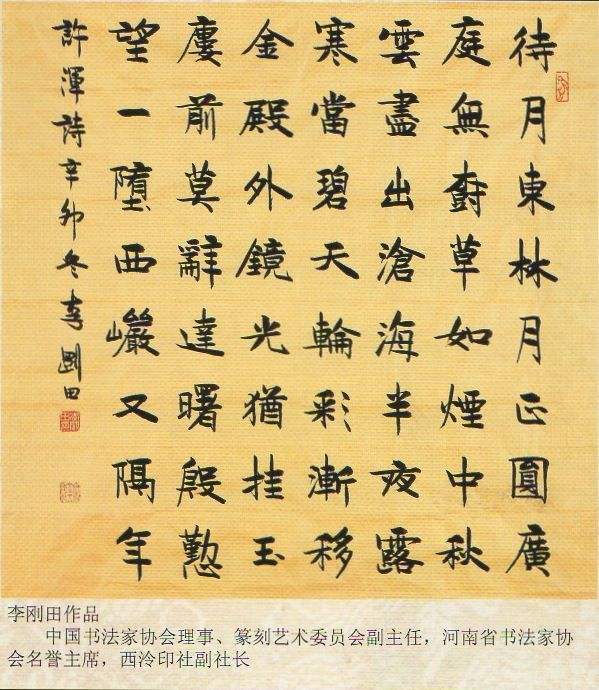 待月東林月正圓廣
庭無樹草如煙中秋
雲盡出滄海半夜露
寒當碧天輪彩漸移
金殿外鏡光猶挂玉
廔前莫辭達曙殷懃
望一墮西巖又隔年
許渾詩辛卯冬李剛田
李刚田作品
中国书法家协会理事、篆刻艺术委员会副主任，河南省书法家协
会名誉主席，西泠印社副社长